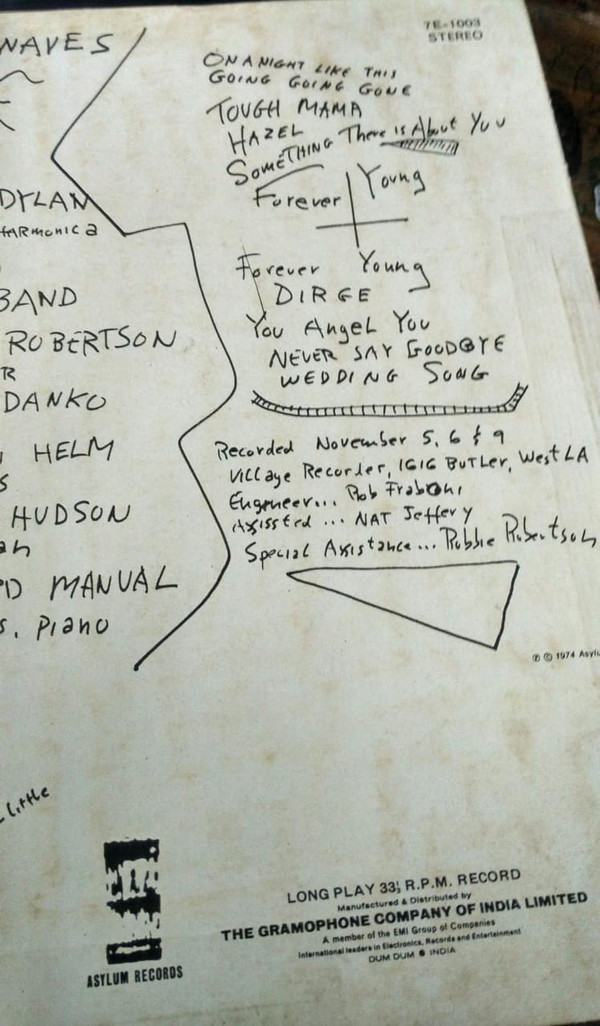 7E-1003
STEREO
WAVES
DYLAN
HARMONICA
BAND
ROBERTSON
R
DANKO
HELM
S
HUDSON
an
D MANUAL
s, Piano
Little
ON A NIGHT LIKE THIS
GOING GOING GONE
TOUGH MAMA
HAZEL
SOMETHING There is About You
Forever Young
Forever Young
DIRGE
You Angel You
NEVER SAY GOODBYE
WEDDING SONG
Recorded November 5, 6 & 9
Village Recorder, 1616 BUTLER, West LA
Engineer... Rob Fraboni
Assissted ... NAT Jeffery
Special Assistance... Robbie Robertson
℗ © 1974 Asylu
ASYLUM RECORDS
LONG PLAY 33⅓ R.P.M. RECORD
Manufactured & Distributed by
THE GRAMOPHONE COMPANY OF INDIA LIMITED
A member of the EMI Group of Companies
International leaders in Electronics, Records and Entertainment
DUM DUM ● INDIA